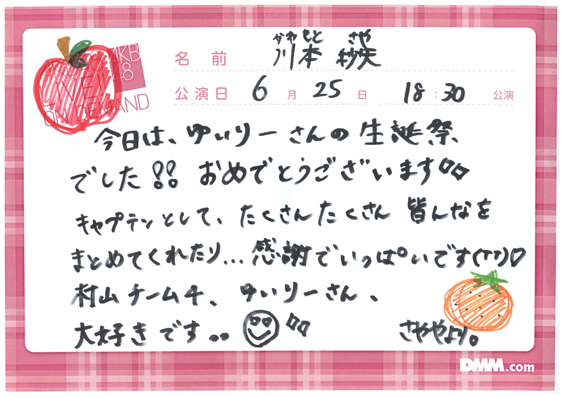 AKB
48
LIVE!!
ON DEMAND
かわもと さや
名前 川本 紗矢
公演日 6月25日 18:30 公演
今日は、ゆいりーさんの生誕祭
でした!! おめでとうございます
キャプテンとして、たくさんたくさん 皆んなを
まとめてくれたり... 感謝でいっぱいです(TT)♡
村山チーム4、ゆいりーさん、
大好きです..
さややより。
DMM.com